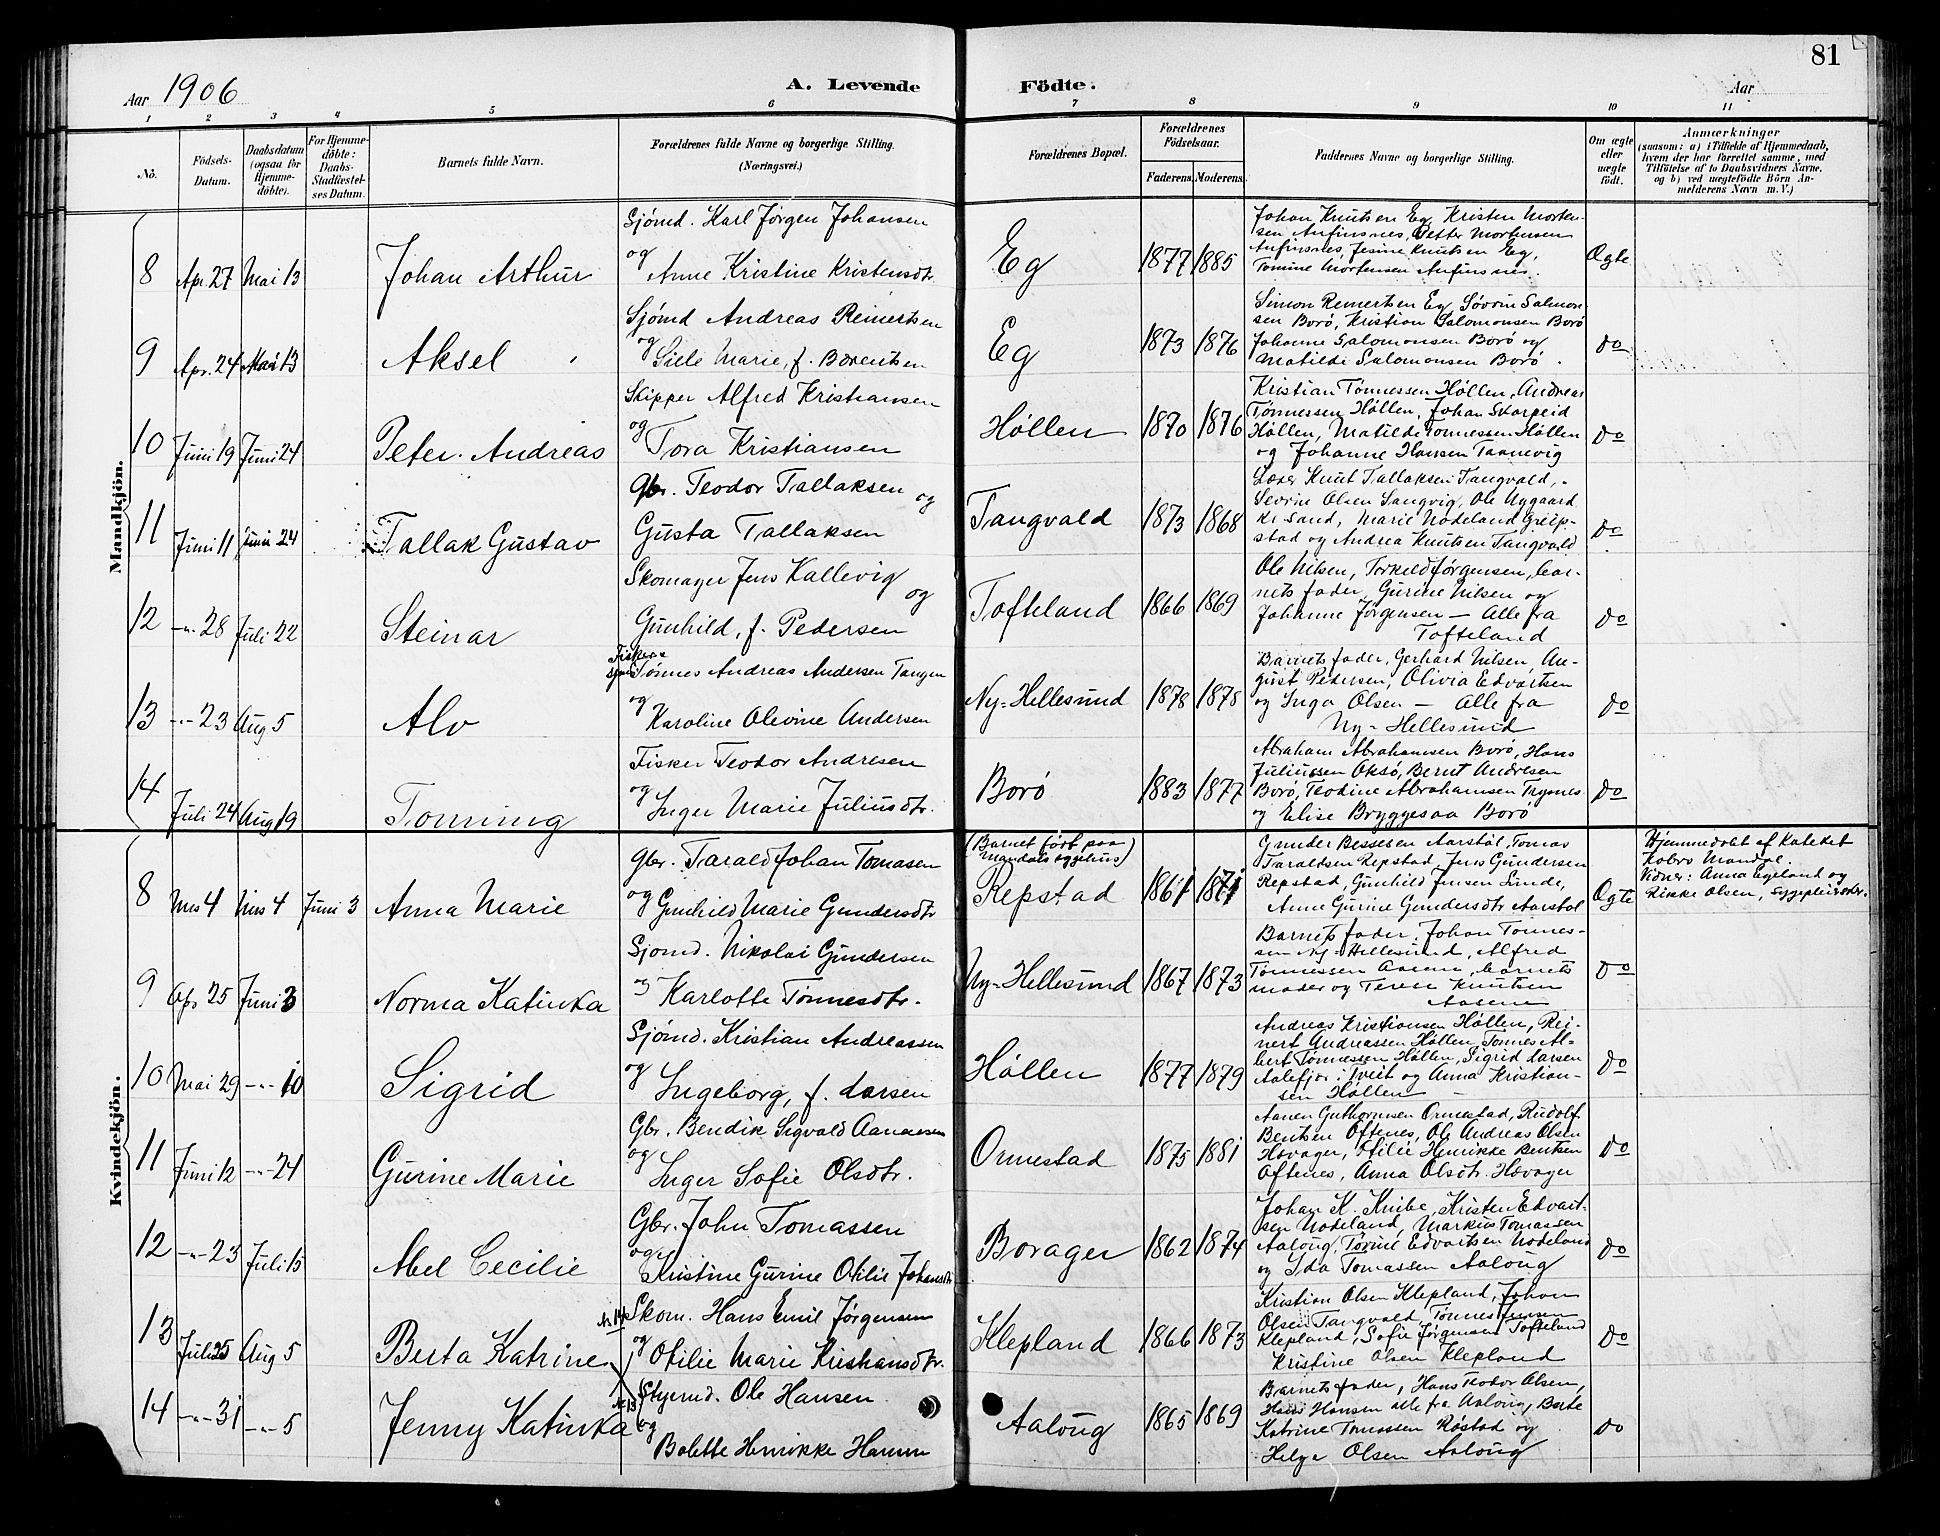 Aar 1906
A. Levende Födte.
81
Aar
1 2 3 4 5 6 7 8 9 10 11
No.
Födsels-Datum.
Daabsdatum (ogsaa for Hjemmedöbte).
For Hjemmedöbte: Daabs-Stadfæstelses Datum.
Barnets fulde Navn.
Forældrenes fulde Navne og borgerlige Stilling.
(Næringsvei.)
Forældrenes Bopæl.
Forældrenes Födselsaar.
Faderens. Moderens.
Faddernes Navne og borgerlige Stilling.
Om ægte eller uægte födt.
Anmærkninger
(saasom: a) i Tilfælde af Hjemmedaab, hvem der har forrettet samme, med Tilföielse af to Daabsvidners Navne, og b) ved uægtefödte Börn Anmelderens Navn m. V.)
Mandkjön.
8 Apr. 27 Mai 13 Johan Arthur
Sjömd. Karl Jørgen Johansen
og Anne Kristine Kristensdtr.
Eg 1877 1885
Johan Knutsen Eg, Kristen Morten-
sen Aufinsnes, Petter Mortensen
Aufinsnes, Jesine Knutsen Eg,
Tomine Mortensen Aufinsnes.
Ægte
9 Apr. 24 Mai 13 Aksel
Sjömd Andreas Reinertsen
og Siele Marie, f. Berentsen
Eg 1873 1876
Simon Reinertsen Eg, Søvrin Salomon-
sen Borö, Kristian Salomonsen Borö
Johanne Salomonsen Borö og
Matilde Salomonsen Borö.
do
10 Juni 19 Juni 24 Peter Andreas
Skipper Alfred Kristiansen
og Tora Kristiansen
Höllen 1870 1876
Kristian Tönnessen Höllen, Andreas
Tönnessen Höllen, Johan Skarpeid
Höllen, Matilde Tönnessen Höllen
og Johanne Hansen Taanevig
do
11 Juni 11 Juni 24 Tallak Gustav
Gbr. Teodor Tallaksen og
Gusta Tallaksen
Tangvald 1873 1868
Lærer Knut Tallaksen Tangvald,
Sevrine Olsen Langvig, Ole Nygaard
Kr.sand, Marie Nodeland Greip-
stad og Andrea Knutsen Tangvald
do
12 -"- 28 Juli 22 Steinar
Skomager Jens Kallevig og
Gunhild, f. Pedersen
Tofteland 1866 1869
Ole Nilsen, Torkild Jørgensen, bar-
nets fader, Gurine Nilsen og
Johanne Jørgensen — Alle fra
Tofteland
do
13 -"- 23 Aug 5 Alv
Fisker Tönnes Andreas Andersen Tangen
og Karoline Olevine Andersen
Ny-Hellesund 1878 1878
Barnets fader, Gerhard Nilsen, Au-
gust Pedersen, Olivia Edvartsen
og Inga Olsen — Alle fra
Ny-Hellesund
do
14 Juli 24 Aug 19
Fisker Teodor Andresen
og Inger Marie Juliusdtr.
Borö 1883 1877
Abraham Abrahamsen Borö, Hans
Juliussen Oksö, Bernt Andresen
Borö, Teodine Abrahamsen Trysnes
og Elise Bryggesaa Borö
do
Kvindekjön.
8 4 4 Juni 3 Anna Marie
Gbr. Tarald Johan Tomasen
og Gunhild Marie Gundersdtr
(Barnet født paa
Mandals sygehus)
Repstad 1861 1871
Gunder Bessesen Aarstöl, Tomas
Taraldsen Repstad, Jens Gundersen
Repstad, Gunhild Jensen Linde,
Anne Gurine Gundersdtr Aarstöl
Ægte
Hjemmedöbt af Kateket
Kobro Mandal.
Vidner: Anna Egeland og
Rikke Olsen, sygepleiersker.
9 Apr. 25 Juni 3 Norma Katinka
Sjömd. Nikolai Gundersen
og Karlotte Tönnesdtr.
Ny-Hellesund 1867 1873
Barnets fader, Johan Tönnes-
sen Ny-Hellesund, Alfred
Tönnessen Aasene, barnets
moder og Terese Knutsen
Aasene
do
10 Mai 29 -"- 10 Sigrid
Sjömd. Kristian Andreassen
og Ingeborg, f. Larsen
Höllen 1877 1879
Andreas Kristiansen Höllen, Rei-
nert Andreassen Höllen, Tönnes Al-
bert Tönnessen Höllen, Sigrid Larsen
Aalefjær i Tveit og Anna Kristian-
sen Höllen
do
11 Juni 12 -"- 24 Gurine Marie
Gbr. Bendik Sigvald Aanensen
og Inger Sofie Olsdtr.
Ormestad 1875 1881
Aanen Guthormsen Ormestad, Rudolf
Bentsen Oftenes, Ole Andreas Olsen
Hovager, Otilie Henrikke Bentsen
Oftenes, Anna Olsdtr. Hovager
do
12 -"- 23 Juli 15 Abel Cecilie
Gbr. John Tomassen
og Kristine Gurine Otilie Johansdtr
Borager 1862 1874
Johan K. Knibe, Kristen Edvart-
sen Nodeland, Markus Tomassen
Aalöug, Torine Edvartsen Nodeland
og Ida Tomassen Aalöug
do
13 Juli 25 Aug 5 Berta Katrine
No 14
Skom. Hans Emil Jørgensen
og Otilie Marie Kristiansdtr.
Klepland 1866 1873
Kristian Olsen Klepland, Johan
Olsen Tangvald, Tönnes Jensen
Klepland, Sofie Jørgensen Tofteland
Kristine Olsen Klepland
do
14 -"- 31 -"- 5 Jenny Katinka
No 13
Styrmd. Ole Hansen
og Bolette Henrikke Hansen
Aalöug 1865 1869
Barnets fader, Hans Teodor Olsen,
Hans Hansen alle fra Aalöug, Berte
Katrine Tomassen Röstad og
Helga Olsen Aalöug
do